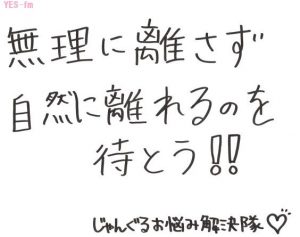 YES-fm
無理に離さず
自然に離れるのを
待とう!!
じゃんぐるお悩み解決隊♡